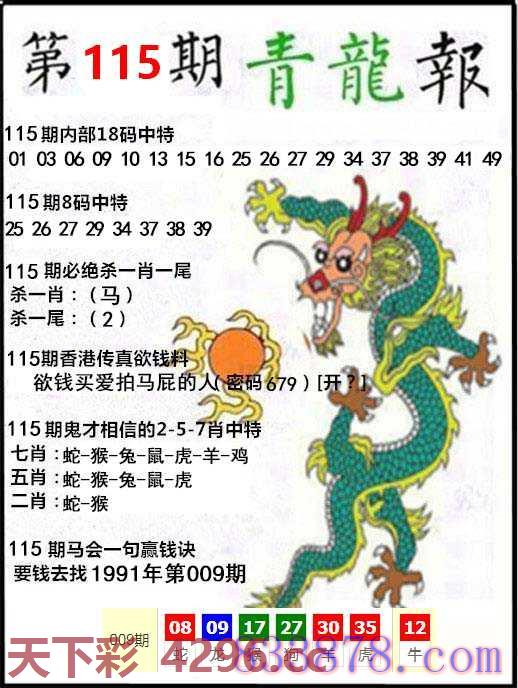 第115期青龍報
115期内部18码中特
01 03 06 09 10 13 15 16 25 26 27 29 34 37 38 39 41 49
115期8码中特
25 26 27 29 34 37 38 39
115期必绝杀一肖一尾
杀一肖:(马)
杀一尾:(2)
115期香港传真欲钱料
欲钱买爱拍马屁的人(密码679)[开?]
115期鬼才相信的2-5-7肖中特
七肖:蛇-猴-兔-鼠-虎-羊-鸡
五肖:蛇-猴-兔-鼠-虎
二肖:蛇-猴
115期马会一句赢钱诀
要钱去找1991年第009期
009期 08 09 17 27 30 35 12
蛇 龙 猴 狗 羊 虎 牛
天下彩 4296.cc